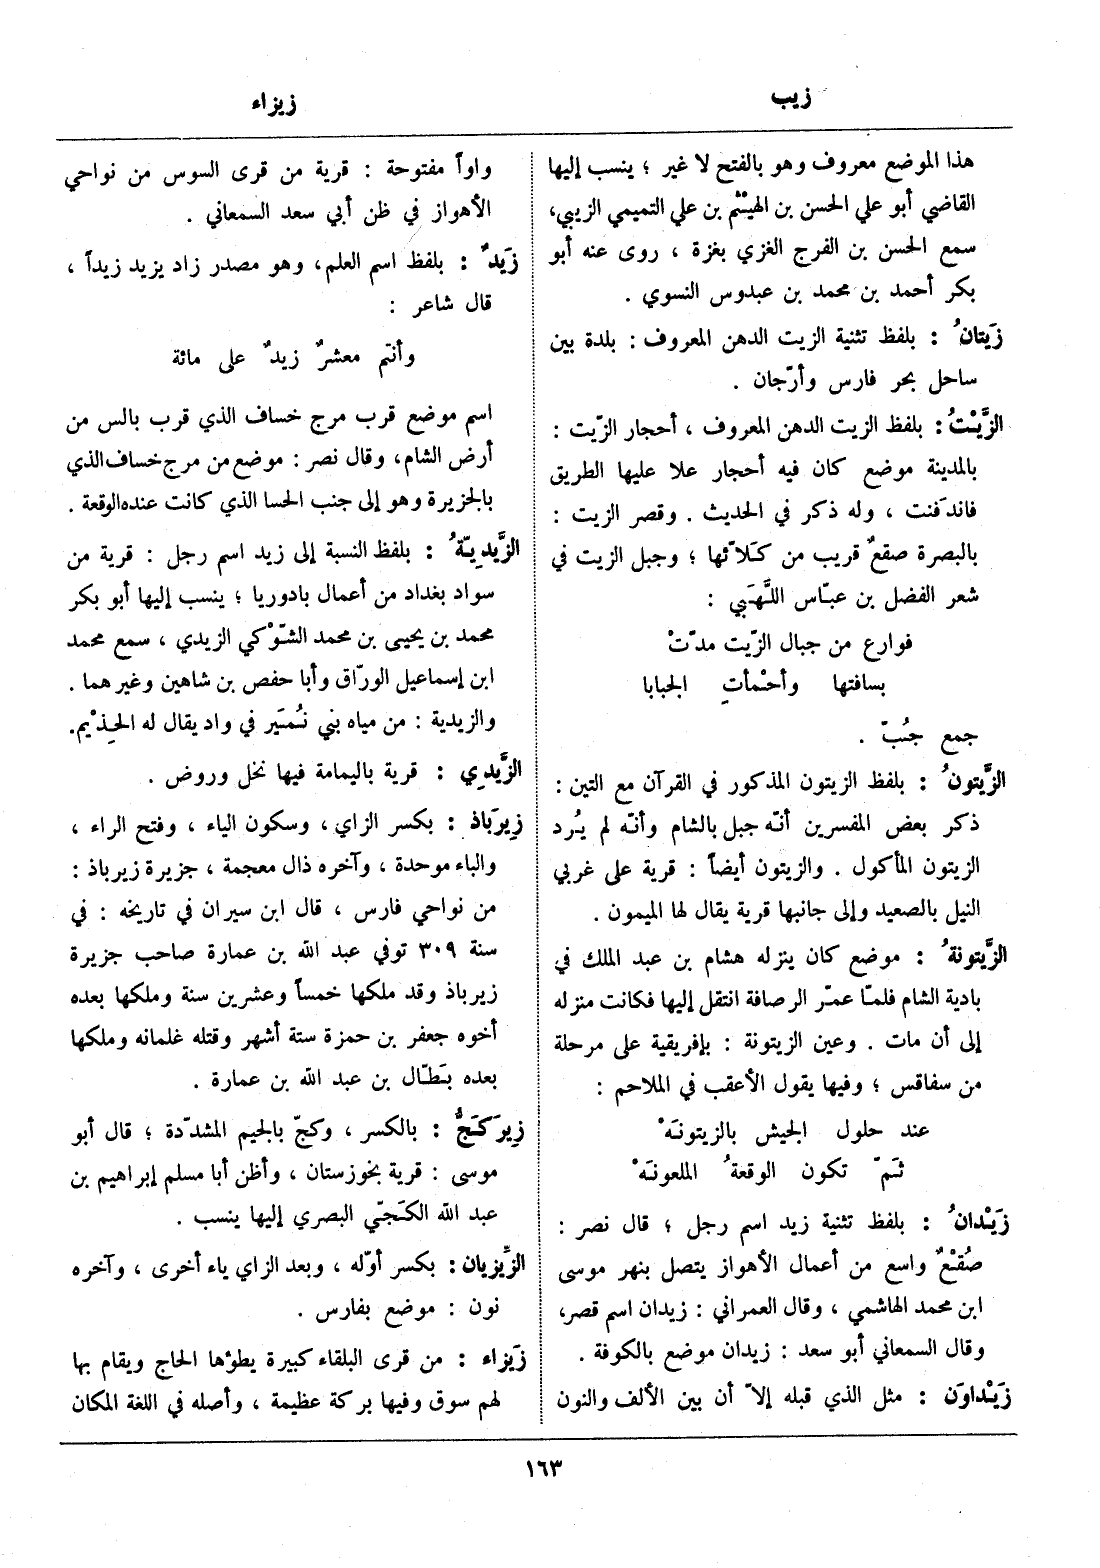 زيب
زيزاء
هذا الموضع معروف وهو بالفتح لا غير ؛ ينسب إليها
القاضي أبو علي الحسن بن الهيْثم بن علي التميمي الزيبي،
سمع الحسن بن الفرج الغزي بغزة ، روى عنه أبو
بكر أحمد بن محمد بن عبدوس النسوي .
زَيتانُ : بلفظ تثنية الزيت الدهن المعروف : بلدة بين
ساحل بحر فارس وأرّجان .
الزَّيْتُ : بلفظ الزيت الدهن المعروف ، أحجار الزّيت :
بالمدينة موضع كان فيه أحجار علا عليها الطريق
فاندَفنت ، وله ذكر في الحديث . وقصر الزيت :
بالبصرة صقعٌ قريب من كَلاّئها ؛ وجبل الزيت في
شعر الفضل بن عبّاس اللَّهَبي :
فوارع من جبال الزّيت مدّتْ
بسافتها وأحْمأتِ الجبابا
جمع جُبّ .
الزَّيتونُ : بلفظ الزيتون المذكور في القرآن مع التين :
ذكر بعض المفسرين أنّه جبل بالشام وأنّه لم يُرد
الزيتون المأكول . والزيتون أيضاً : قرية على غربي
النيل بالصعيد وإلى جانبها قرية يقال لها الميمون .
الزَّيتونةُ : موضع كان ينزله هشام بن عبد الملك في
بادية الشام فلمّا عمّر الرصافة انتقل إليها فكانت منزله
إلى أن مات . وعين الزيتونة : بإفريقية على مرحلة
من سفاقس ؛ وفيها يقول الأعقب في الملاحم :
عند حلول الجيش بالزيتونَهْ
ثَمّ تكون الوقعةُ الملعونَهْ
زَيْدانُ : بلفظ تثنية زيد اسم رجل ؛ قال نصر :
صُقْعٌ واسع من أعمال الأهواز يتصل بنهر موسى
ابن محمد الهاشمي ، وقال العمراني : زيدان اسم قصر،
وقال السمعاني أبو سعد : زيدان موضع بالكوفة .
زَيْداوَن : مثل الذي قبله إلاّ أن بين الألف والنون
واواً مفتوحة : قرية من قرى السوس من نواحي
الأهواز في ظن أبي سعد السمعاني .
زَيدٌ : بلفظ اسم العلم، وهو مصدر زاد يزيد زيداً ،
قال شاعر :
وأنتم معشرٌ زيدٌ على مائة
اسم موضع قرب مرج خساف الذي قرب بالس من
أرض الشام، وقال نصر : موضع من مرج خساف الذي
بالجزيرة وهو إلى جنب الحسا الذي كانت عنده الوقعة .
الزَّيدِيّةُ : بلفظ النسبة إلى زيد اسم رجل : قرية من
سواد بغداد من أعمال بادوريا ؛ ينسب إليها أبو بكر
محمد بن يحيى بن محمد الشّوْكي الزيدي ، سمع محمد
ابن إسماعيل الورّاق وأبا حفص بن شاهين وغيرهما .
والزيدية : من مياه بني نُمَير في واد يقال له الحِذْيم.
الزَّيدِي : قرية باليمامة فيها نخل وروض .
زِيرَباذ : بكسر الزاي ، وسكون الياء ، وفتح الراء ،
والباء موحدة ، وآخره ذال معجمة ، جزيرة زيرباذ :
من نواحي فارس ، قال ابن سيران في تاريخه : في
سنة ٣٠٩ توفي عبد الله بن عمارة صاحب جزيرة
زيرباذ وقد ملكها خمساً وعشرين سنة وملكها بعده
أخوه جعفر بن حمزة ستة أشهر وقتله غلمانه وملكها
بعده بَطّال بن عبد الله بن عمارة .
زِيرَكَجُّ : بالكسر ، وكجّ بالجيم المشدّدة ؛ قال أبو
موسى : قرية بخوزستان ، وأظن أبا مسلم إبراهيم بن
عبد الله الكَجّي البصري إليها ينسب .
الزِّيزيان : بكسر أوّله ، وبعد الزاي ياء أخرى ، وآخره
نون : موضع بفارس .
زَيزاء : من قرى البلقاء كبيرة يطؤها الحاج ويقام بها
لهم سوق وفيها بركة عظيمة ، وأصله في اللغة المكان
١٦٣